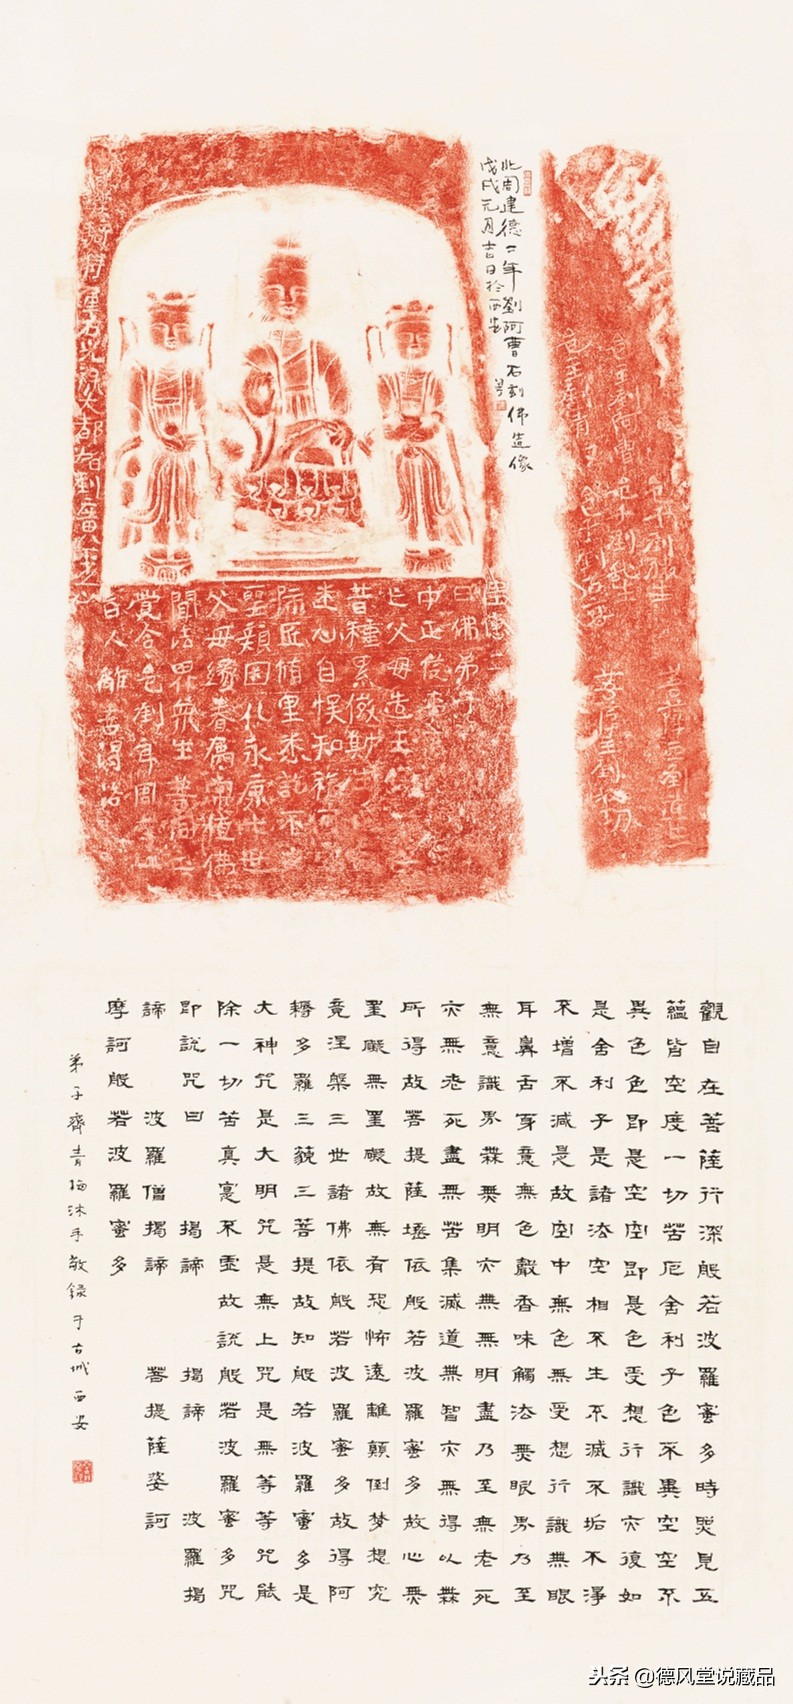 北周建德二年劉阿曹石刻佛造像
戊戌元月吉日於西安
邑主劉阿曹
建德二
曰佛弟子
中正
亡父母造玉
昔種
迷心自悮知
悉訖不
聖顏
永康七世
父母緣眷屬常值佛
聞法界眾生普同
覺合邑劉
百人離苦得洛
觀自在菩薩行深般若波羅蜜多時照見五
蘊皆空度一切苦厄舍利子色不異空空不
異色色即是空空即是色受想行識亦復如
是舍利子是諸法空相不生不滅不垢不淨
不增不減是故空中無色無受想行識無眼
耳鼻舌身意無色聲香味觸法無眼界乃至
無意識界無無明亦無無明盡乃至無老死
亦無老死盡無苦集滅道無智亦無得以無
所得故菩提薩埵依般若波羅蜜多故心無
罣礙無罣礙故無有恐怖遠離顛倒夢想究
竟涅槃三世諸佛依般若波羅蜜多故得阿
耨多羅三藐三菩提故知般若波羅蜜多是
大神咒是大明咒是無上咒是無等等咒能
除一切苦真實不虛故說般若波羅蜜多咒
即說咒曰 揭諦 揭諦 波羅揭
諦 波羅僧揭諦 菩提薩婆訶
摩訶般若波羅蜜多
弟子齊青梅沐手敬錄于古城西安
头条 @德风堂说藏品